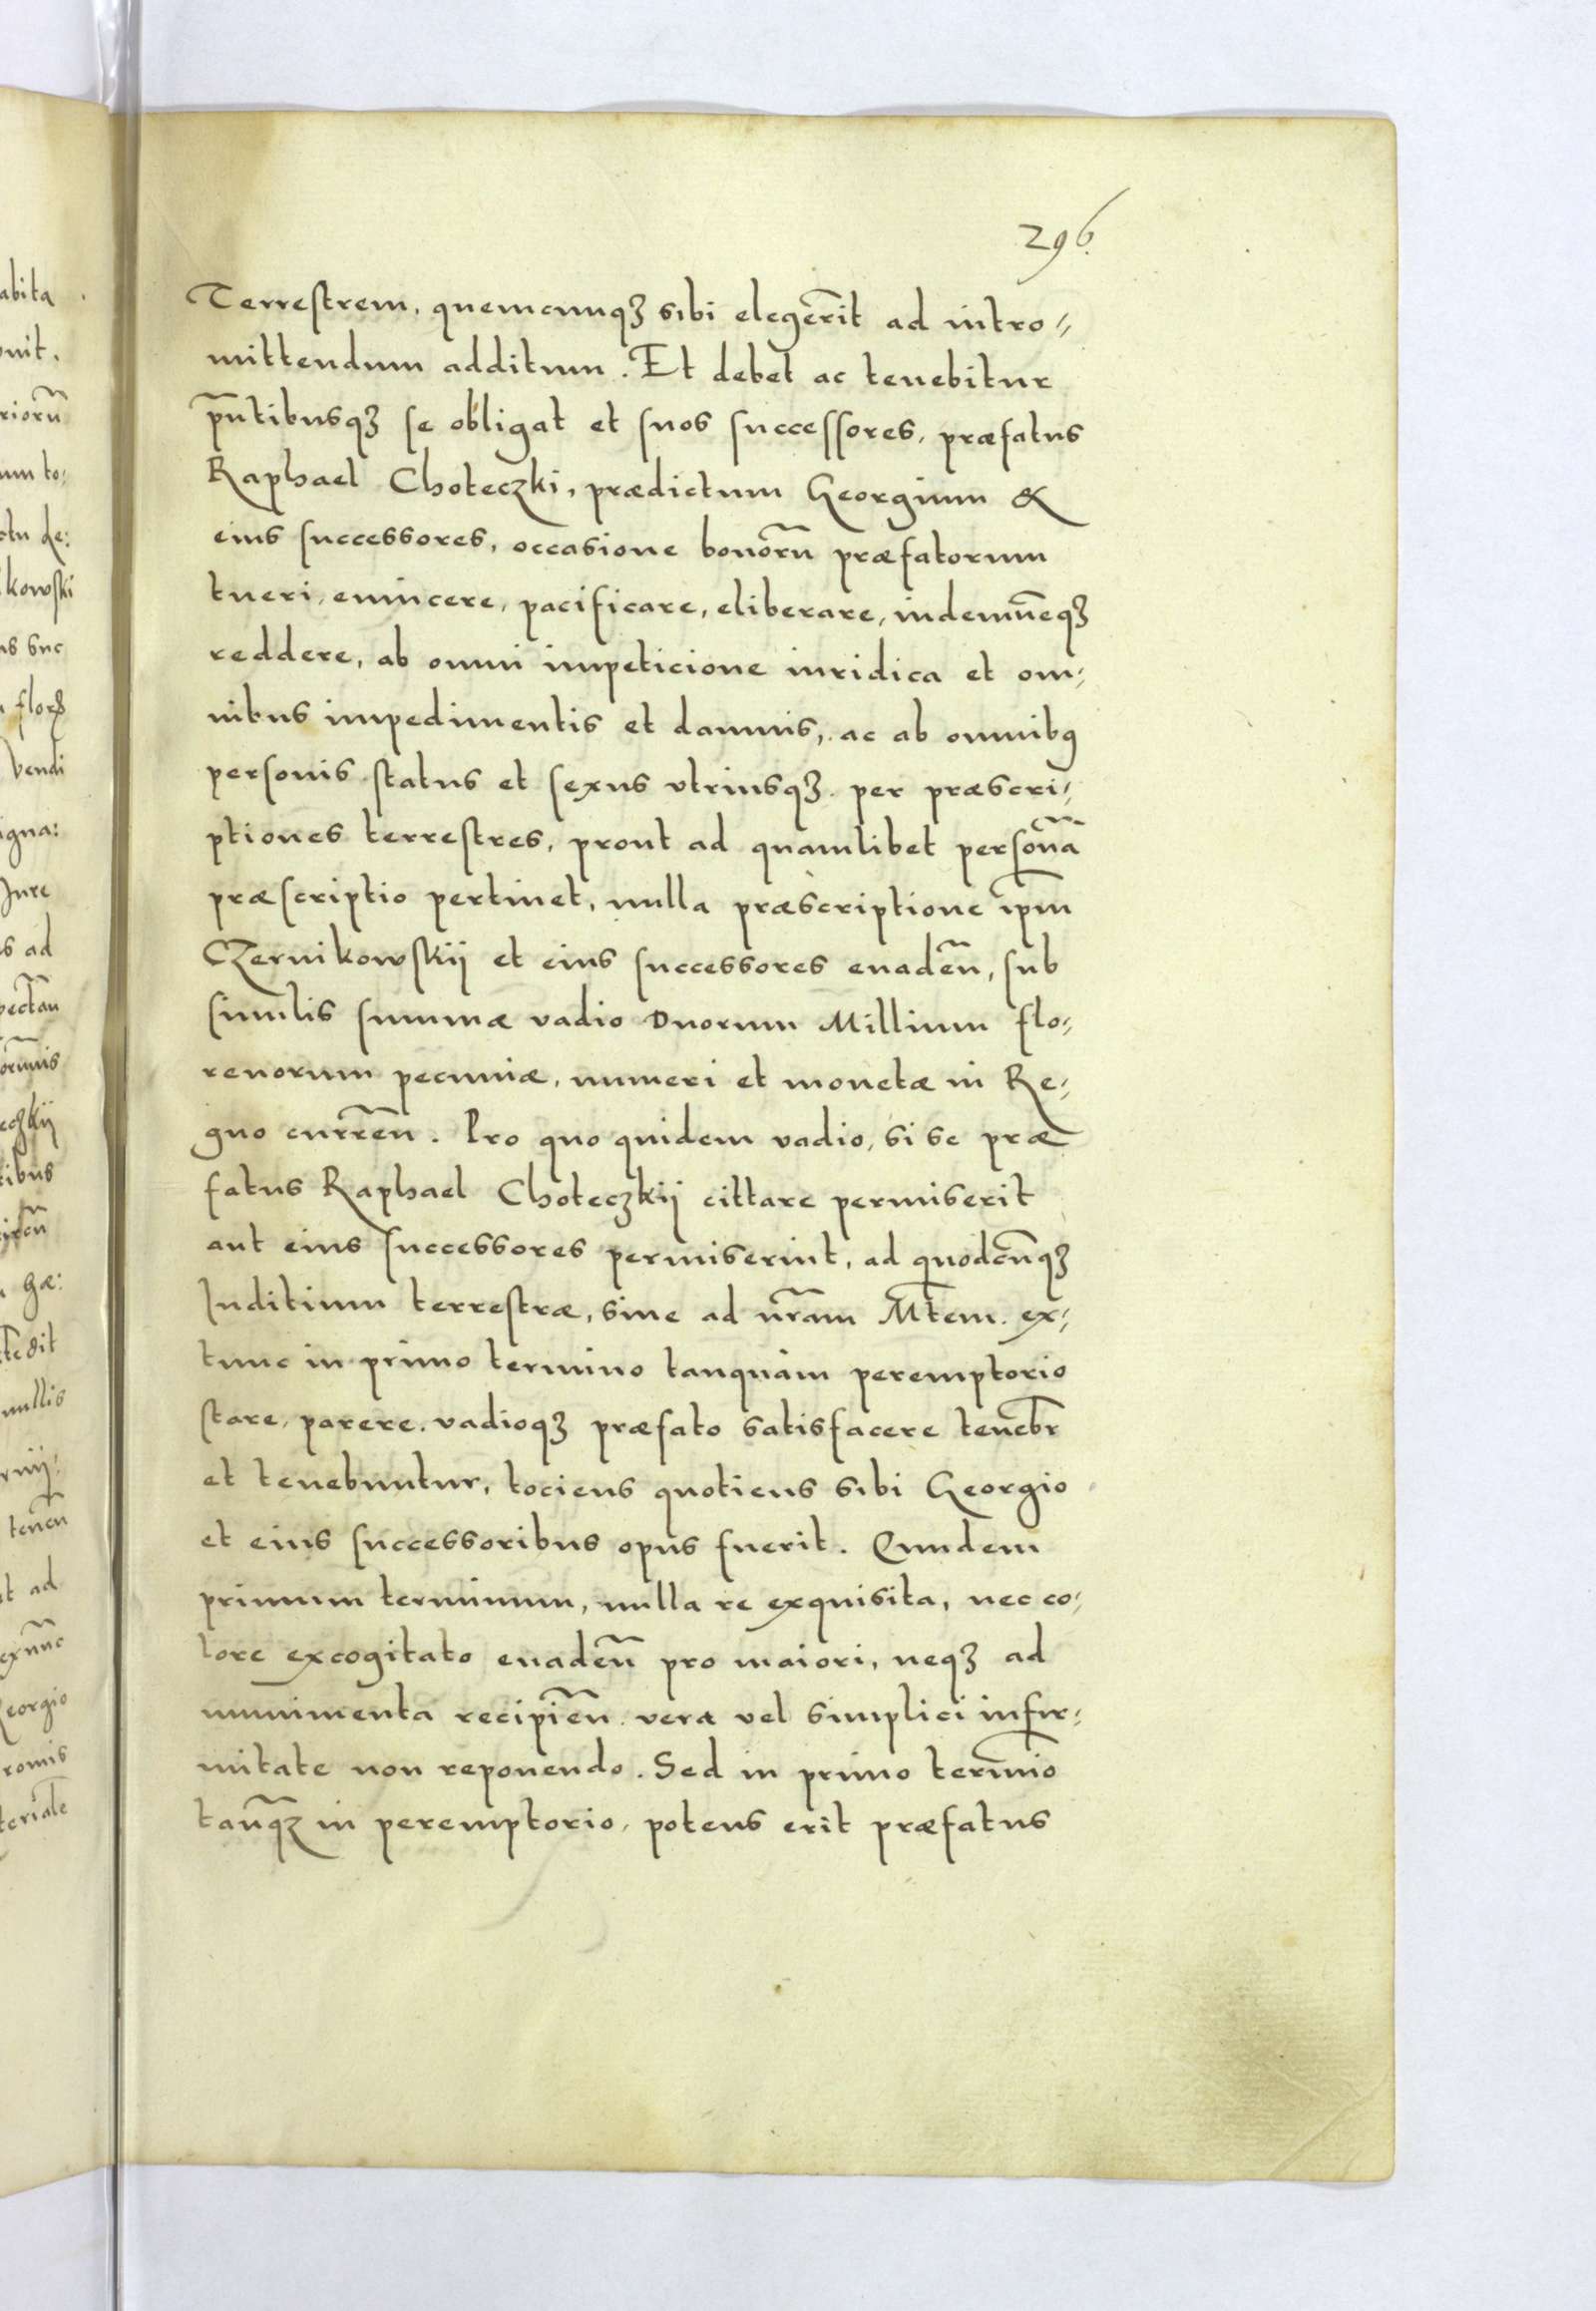 296.
Terrestrem, quemcunqꝫ sibi elegerit ad intro⸗
mittendum additum. Et debet ac tenebitur
pn̄tibusqꝫ se obligat et suos successores, præfatus
Raphael Choteczki, prædictum Georgium &
eius successores, occasione bonorū præfatorum
tueri, euincere, pacificare, eliberare, indemnēqꝫ
reddere, ab omni impeticione iuridica et om⸗
nibus impedimentis et damnis, ac ab omnibꝯ
personis status et sexus vtriusqꝫ. per præscri⸗
ptiones terrestres, prout ad quamlibet personā
præscriptio pertinet, nulla præscriptione ip̄m
CZernikowskij et eius successores euaden̄, sub
similis summæ vadio Duorum Millium flo⸗
renorum pecuniæ, numeri et monetæ in Re⸗
gno curren̄. Pro quo quidem vadio, si se præ
fatus Raphael Choteczkij cittare permiserit
aut eius successores permiserint, ad quodcūqꝫ
Iuditium terrestræ, siue ad nr̄am M̄tem. ex⸗
tunc in primo termino tanquam peremptorio
stare, parere. vadioqꝫ præfato satisfacere tenebr̄
et tenebuntur, tociens quotiens sibi Georgio
et eius successoribus opus fuerit. Eundem
primum terminum, nulla re exquisita, nec co⸗
lore excogitato euaden̄ pro maiori, neqꝫ ad
munimenta recipien̄. vera vel simplici infir⸗
mitate non reponendo. Sed in primo termio̅
tanqꝫ in peremptorio, potens erit præfatus
abita
unit.
riorū
um to:
ctu de:
ikowski
us suc
vendi
igna:
Jure
us ad
pectan̄
eczkij
tibus
gæ:
nullis
tenen̄
ut ad
Georgio
teriale